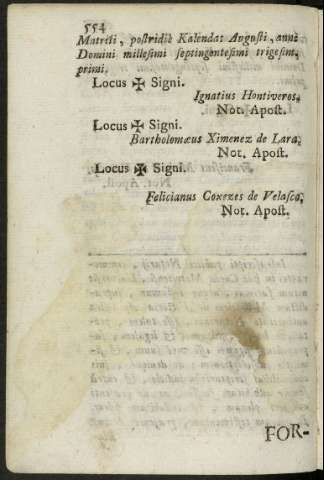 554
Matriti, postridiè Kalendas Augusti, anno
Domini millesimi septingentesimi trigesim.
primi.
Locus ✠ Signi.
Ignatius Hontiveros,
Not. Apost.
Locus ✠ Signi.
Bartholomæus Ximenez de Lara,
Not. Apost.
Locus ✠ Signi.
Felicianus Coxezes de Velasco,
Not. Apost.
FOR-